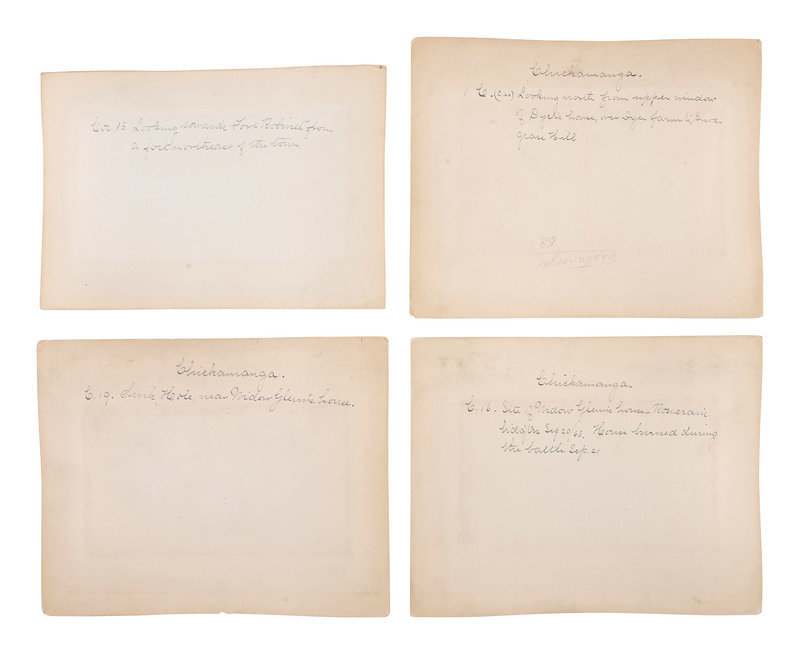 Cor. 15 Looking towards Fort Robinet from
a fort northeast of the town
Chickamanga.
C. Looking north from upper window
of Dyer's house, over Dyer farm to Snod
grass Hill.
Chattanooga
63
Chickamanga.
C. 19. Sink Hole, near Widow Glenn's house.
Chickamanga.
C. 16. Site of Widow Glenn's house Rosecrans
hdqtrs Sep 20/63. House burned during
the battle Sep.